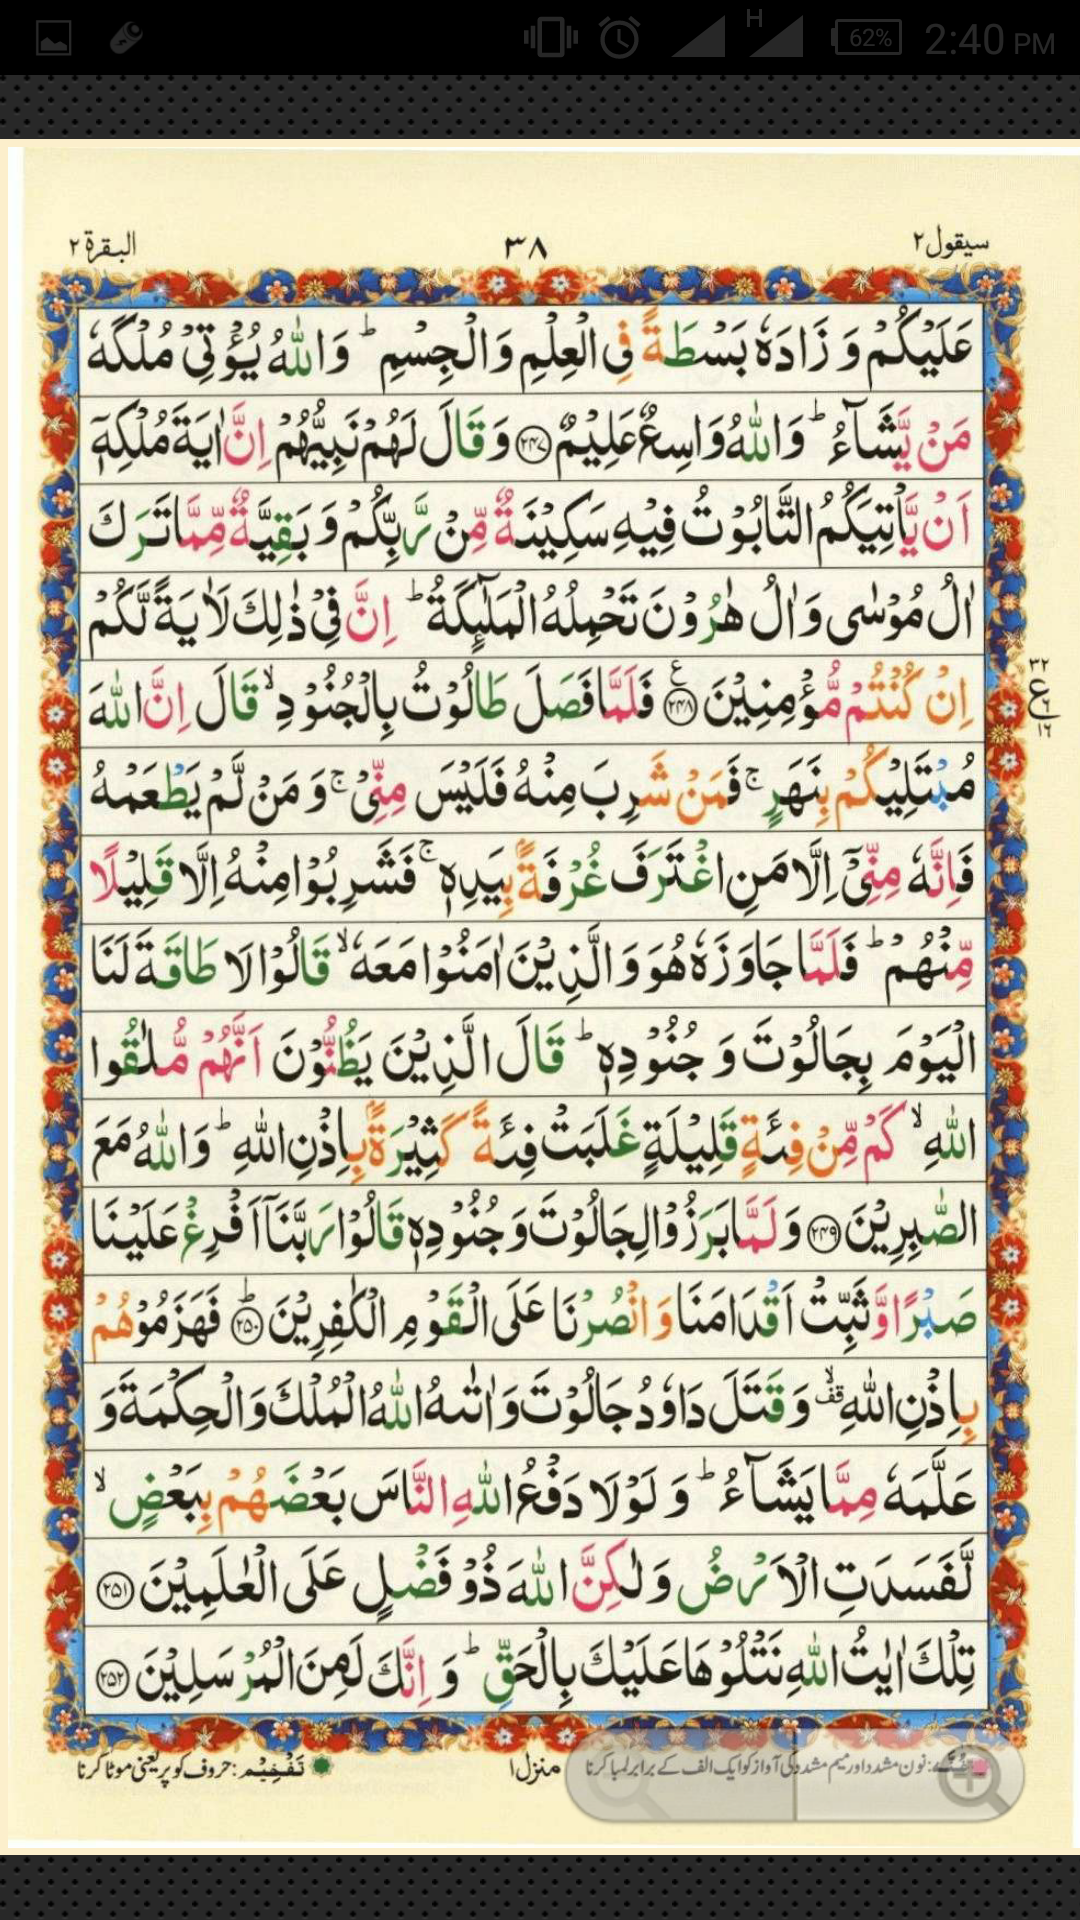 62% 2:40 PM
H
سيقول ٢ ٣٨ البقرة ٢
عَلَيْكُمْ وَ زَادَهٗ بَسْطَةً فِی الْعِلْمِ وَ الْجِسْمِ ؕ وَ اللّٰهُ یُؤْتِیْ مُلْكَهٗ
مَنْ یَّشَآءُ ؕ وَ اللّٰهُ وَاسِعٌ عَلِیْمٌ ﴿۲۴۷﴾ وَ قَالَ لَهُمْ نَبِیُّهُمْ اِنَّ اٰیَةَ مُلْكِهٖۤ
اَنْ یَّاْتِیَكُمُ التَّابُوْتُ فِیْهِ سَكِیْنَةٌ مِّنْ رَّبِّكُمْ وَ بَقِیَّةٌ مِّمَّا تَرَكَ
اٰلُ مُوْسٰی وَ اٰلُ هٰرُوْنَ تَحْمِلُهُ الْمَلٰٓئِكَةُ ؕ اِنَّ فِیْ ذٰلِكَ لَاٰیَةً لَّكُمْ
اِنْ كُنْتُمْ مُّؤْمِنِیْنَ ﴿۲۴۸﴾ ع فَلَمَّا فَصَلَ طَالُوْتُ بِالْجُنُوْدِ ۙ قَالَ اِنَّ اللّٰهَ
٣٢
ع
٦
١٦
مُبْتَلِیْكُمْ بِنَهَرٍ ۚ فَمَنْ شَرِبَ مِنْهُ فَلَیْسَ مِنِّیْ ۚ وَ مَنْ لَّمْ یَطْعَمْهُ
فَاِنَّهٗ مِنِّیْۤ اِلَّا مَنِ اغْتَرَفَ غُرْفَةًۢ بِیَدِهٖ ۚ فَشَرِبُوْا مِنْهُ اِلَّا قَلِیْلًا
مِّنْهُمْ ؕ فَلَمَّا جَاوَزَهٗ هُوَ وَ الَّذِیْنَ اٰمَنُوْا مَعَهٗ ۙ قَالُوْا لَا طَاقَةَ لَنَا
الْیَوْمَ بِجَالُوْتَ وَ جُنُوْدِهٖ ؕ قَالَ الَّذِیْنَ یَظُنُّوْنَ اَنَّهُمْ مُّلٰقُوا
اللّٰهِ ۙ كَمْ مِّنْ فِئَةٍ قَلِیْلَةٍ غَلَبَتْ فِئَةً كَثِیْرَةًۢ بِاِذْنِ اللّٰهِ ؕ وَ اللّٰهُ مَعَ
الصّٰبِرِیْنَ ﴿۲۴۹﴾ وَ لَمَّا بَرَزُوْا لِجَالُوْتَ وَ جُنُوْدِهٖ قَالُوْا رَبَّنَاۤ اَفْرِغْ عَلَیْنَا
صَبْرًا وَّ ثَبِّتْ اَقْدَامَنَا وَ انْصُرْنَا عَلَی الْقَوْمِ الْكٰفِرِیْنَ ﴿۲۵۰﴾ؕ فَهَزَمُوْهُمْ
بِاِذْنِ اللّٰهِ ۙ۫ وَ قَتَلَ دَاوٗدُ جَالُوْتَ وَ اٰتٰىهُ اللّٰهُ الْمُلْكَ وَ الْحِكْمَةَ وَ
عَلَّمَهٗ مِمَّا یَشَآءُ ؕ وَ لَوْ لَا دَفْعُ اللّٰهِ النَّاسَ بَعْضَهُمْ بِبَعْضٍ ۙ
لَّفَسَدَتِ الْاَرْضُ وَ لٰكِنَّ اللّٰهَ ذُوْ فَضْلٍ عَلَی الْعٰلَمِیْنَ ﴿۲۵۱﴾
تِلْكَ اٰیٰتُ اللّٰهِ نَتْلُوْهَا عَلَیْكَ بِالْحَقِّ ؕ وَ اِنَّكَ لَمِنَ الْمُرْسَلِیْنَ ﴿۲۵۲﴾
غُنَّہ: نون مشدد اور میم مشدد کی آواز کو ایک الف کے برابر لمبا کرنا منزل ١ تَفْخِیْم: حروف کو پُر یعنی موٹا کرنا